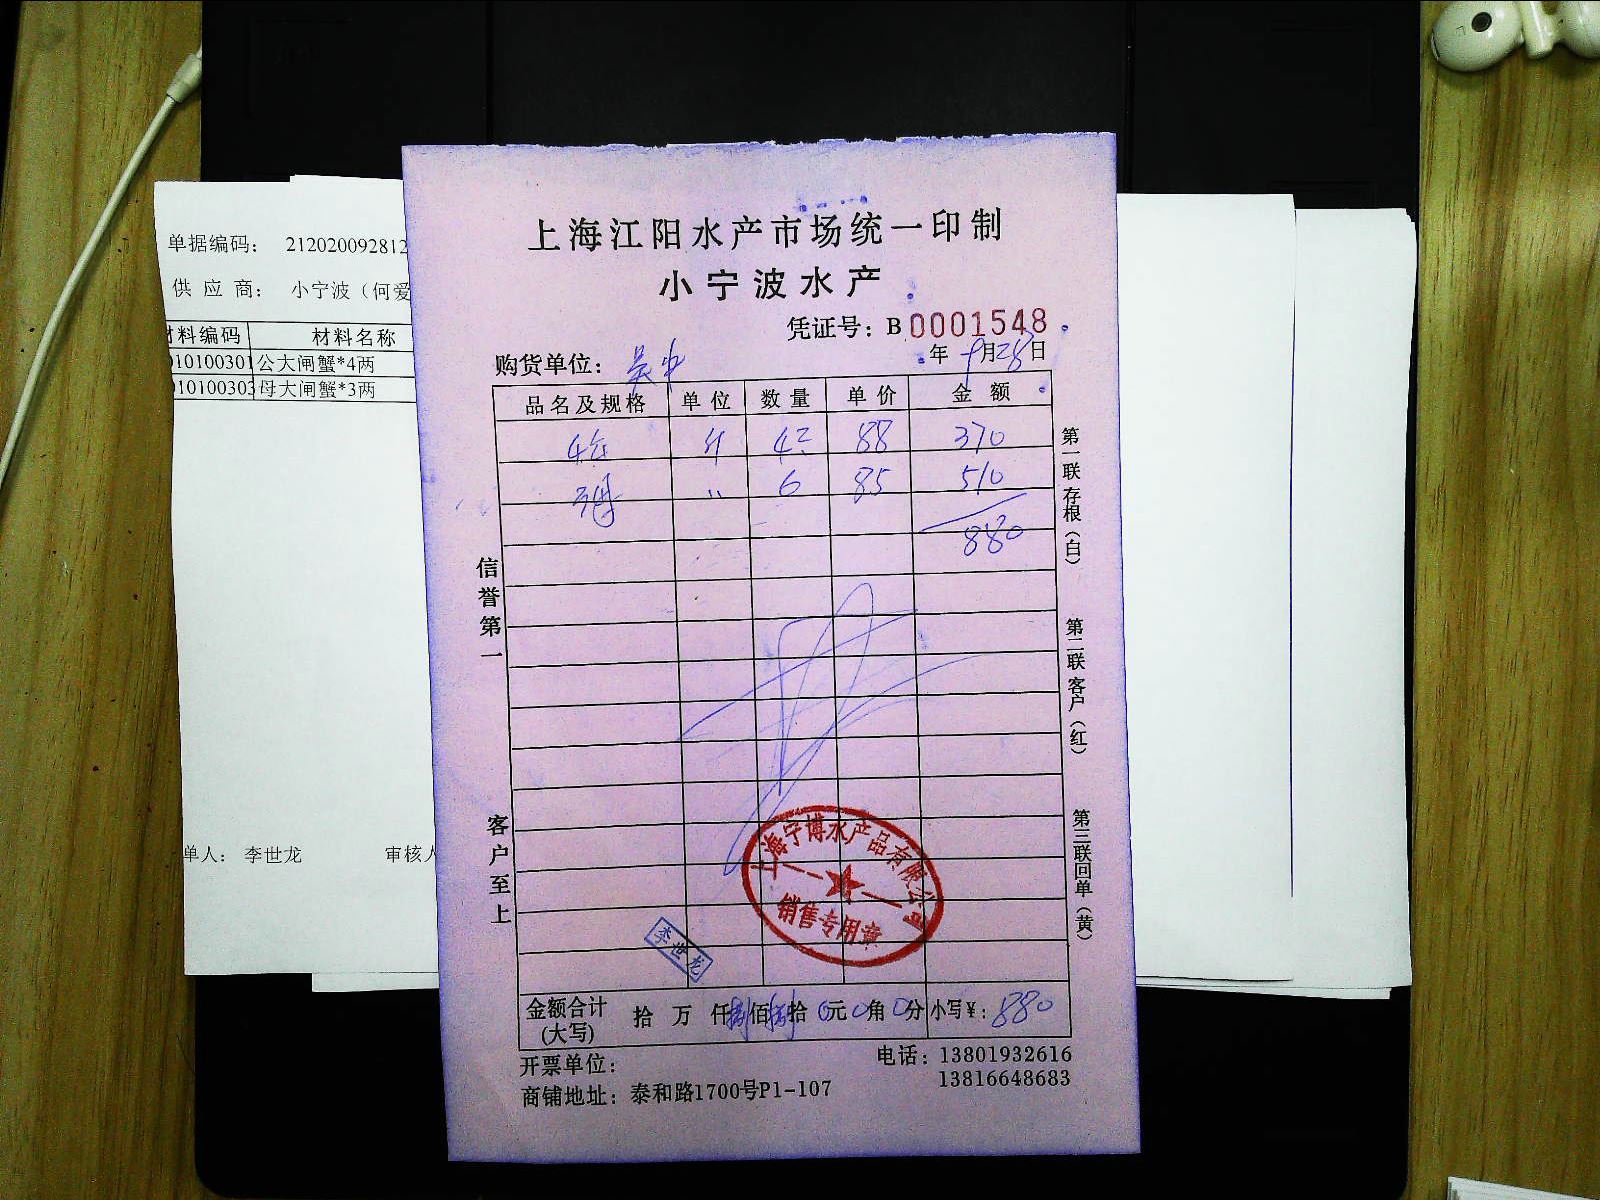 单据编码： 212020092812
供 应 商： 小宁波（何爱
材料编码 材料名称
010100301 公大闸蟹*4两
010100303 母大闸蟹*3两
单人： 李世龙 审核人
上海江阳水产市场统一印制
小宁波水产
凭证号：B 0001548
购货单位： 年 9月28日
品名及规格 单位 数量 单价 金额
斤 42 88 370
3母 〃 6 85 510
880
信誉第一
客户至上
第一联存根（白）
第二联客户（红）
第三联回单（黄）
上海宁博水产品有限公司
销售专用章
李世龙
金额合计(大写) 拾 万 仟捌佰捌拾0元0角0分 小写¥：880
开票单位： 电话：13801932616
13816648683
商铺地址：泰和路1700号P1-107